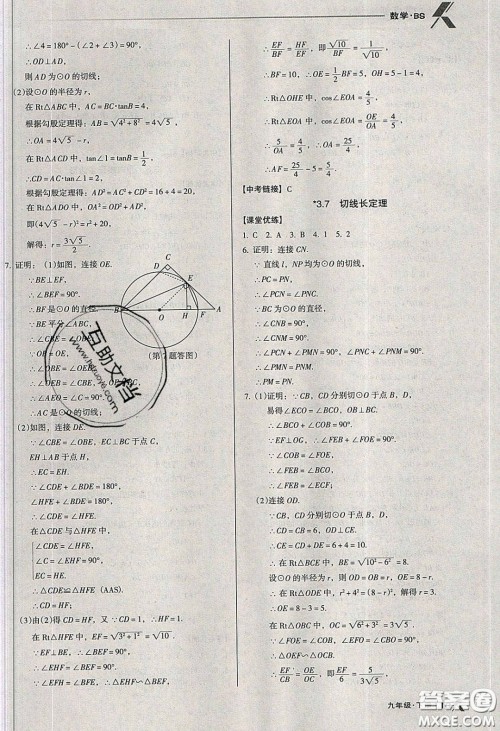 数学·BS
∴∠4=180°-(∠2+∠3)=90°,
∴OD⊥AD,
则AD为⊙O的切线;
(2)设⊙O的半径为r,
在Rt△ABC中,AC=BC·tanB=4,
根据勾股定理得:AB=√(4²+8²)=4√5,
∴OA=4√5-r,
在Rt△ACD中,tan∠1=tanB=1/2,
∴CD=AC·tan∠1=2,
根据勾股定理得:AD²=AC²+CD²=16+4=20,
在Rt△ADO中,OA²=OD²+AD²,
即(4√5-r)²=r²+20,
解得:r=3√5/2.
7.证明:(1)如图,连接OE.
∵BE⊥EF,
∴∠BEF=90°,
∴BF是⊙O的直径.
∵BE平分∠ABC,
∴∠CBE=∠OBE,
∵OB=OE,
∴∠OBE=∠OEB,
∴∠OEB=∠CBE,
∴OE∥BC,
∴∠AEO=∠C=90°,
∴AC是⊙O的切线;
(第7题答图)
(2)如图,连接DE.
∵∠CBE=∠OBE,EC⊥BC于点C,
EH⊥AB于点H,
∴EC=EH.
∵∠CDE+∠BDE=180°,
∠HFE+∠BDE=180°,
∴∠CDE=∠HFE,
在△CDE与△HFE中,
∠CDE=∠HFE,
∠C=∠EHF=90°,
EC=EH,
∴△CDE≌△HFE(AAS).
∴CD=HF.
(3)由(2)得CD=HF,又∵CD=1,∴HF=1.
在Rt△HFE中,EF=√(3²+1²)=√10.
∵EF⊥BE,∴∠BEF=90°,
∴∠EHF=∠BEF=90°.
∵∠EFH=∠BFE,
∴△EHF∽△BEF,
∴EF/BF=HF/EF,即√10/BF=1/√10,
∴BF=10,∴OE=1/2BF=5,OH=5-1=4,
∴在Rt△OHE中,cos∠EOA=4/5,
∴在Rt△EOA中,cos∠EOA=OE/OA=4/5,
∴5/OA=4/5,∴OA=25/4,
∴AF=25/4-5=5/4.
【中考链接】C
*3.7 切线长定理
【课堂优练】
1.C 2.A 3.B 4.1 5.2
6.证明:连接CN.
∵直线l,NP均与⊙O相切
∴PC=PN,
∴∠PCN=∠PNC.
∵BC为⊙O的直径,
∴∠BNC=90°,
∴∠PCN+∠PMN=90°,∠PNC+∠PNM=90°.
∴∠PMN=∠PNM,
∴PM=PN.
7.(1)证明:∵CB,CD分别切⊙O于点B,D,
易得∠OCE=∠BCF,∠OBC=90°.
∵EF⊥OG,∴∠EFC=90°,
∵∠COB=∠FOE,
∴∠FEB=∠BCF,
∴∠FEB=∠ECF;
(2)连接OD.
∵CB,CD分别切⊙O于点B,D,
∴CD=CB=6.又∵DE=4.∴CE=10.
∴在Rt△BCE中,BE=√(10²-6²)=8.
设⊙O的半径为r,则OD=OB=r,OE=8-r.
∴在Rt△ODE中,r²+4²=(8-r)²,解得r=3.
∴OE=8-3=5.
∴在Rt△OBC中,OC=√(6²+3²)=3√5.
∵∠FOE=∠COB,∠EFO=∠CBO=90°,
∴△OEF∽△OCB,
∴EF/CB=OE/OC,即EF/6=5/(3√5),
互助文档
www.hzdocx.com
九年级·下
答案圈
MXQE.COM